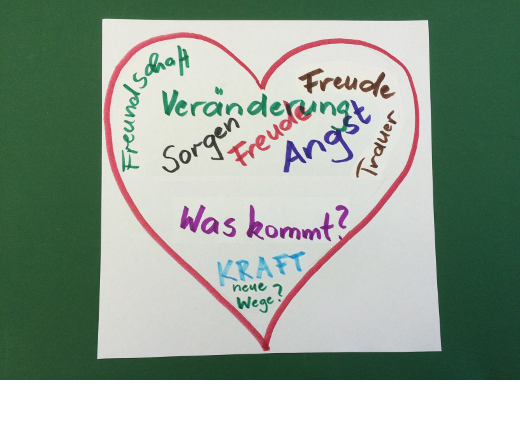 Freundschaft
Freude
Veränderung
Sorgen
Freude
Angst
Trauer
Was kommt?
KRAFT
neue
Wege?